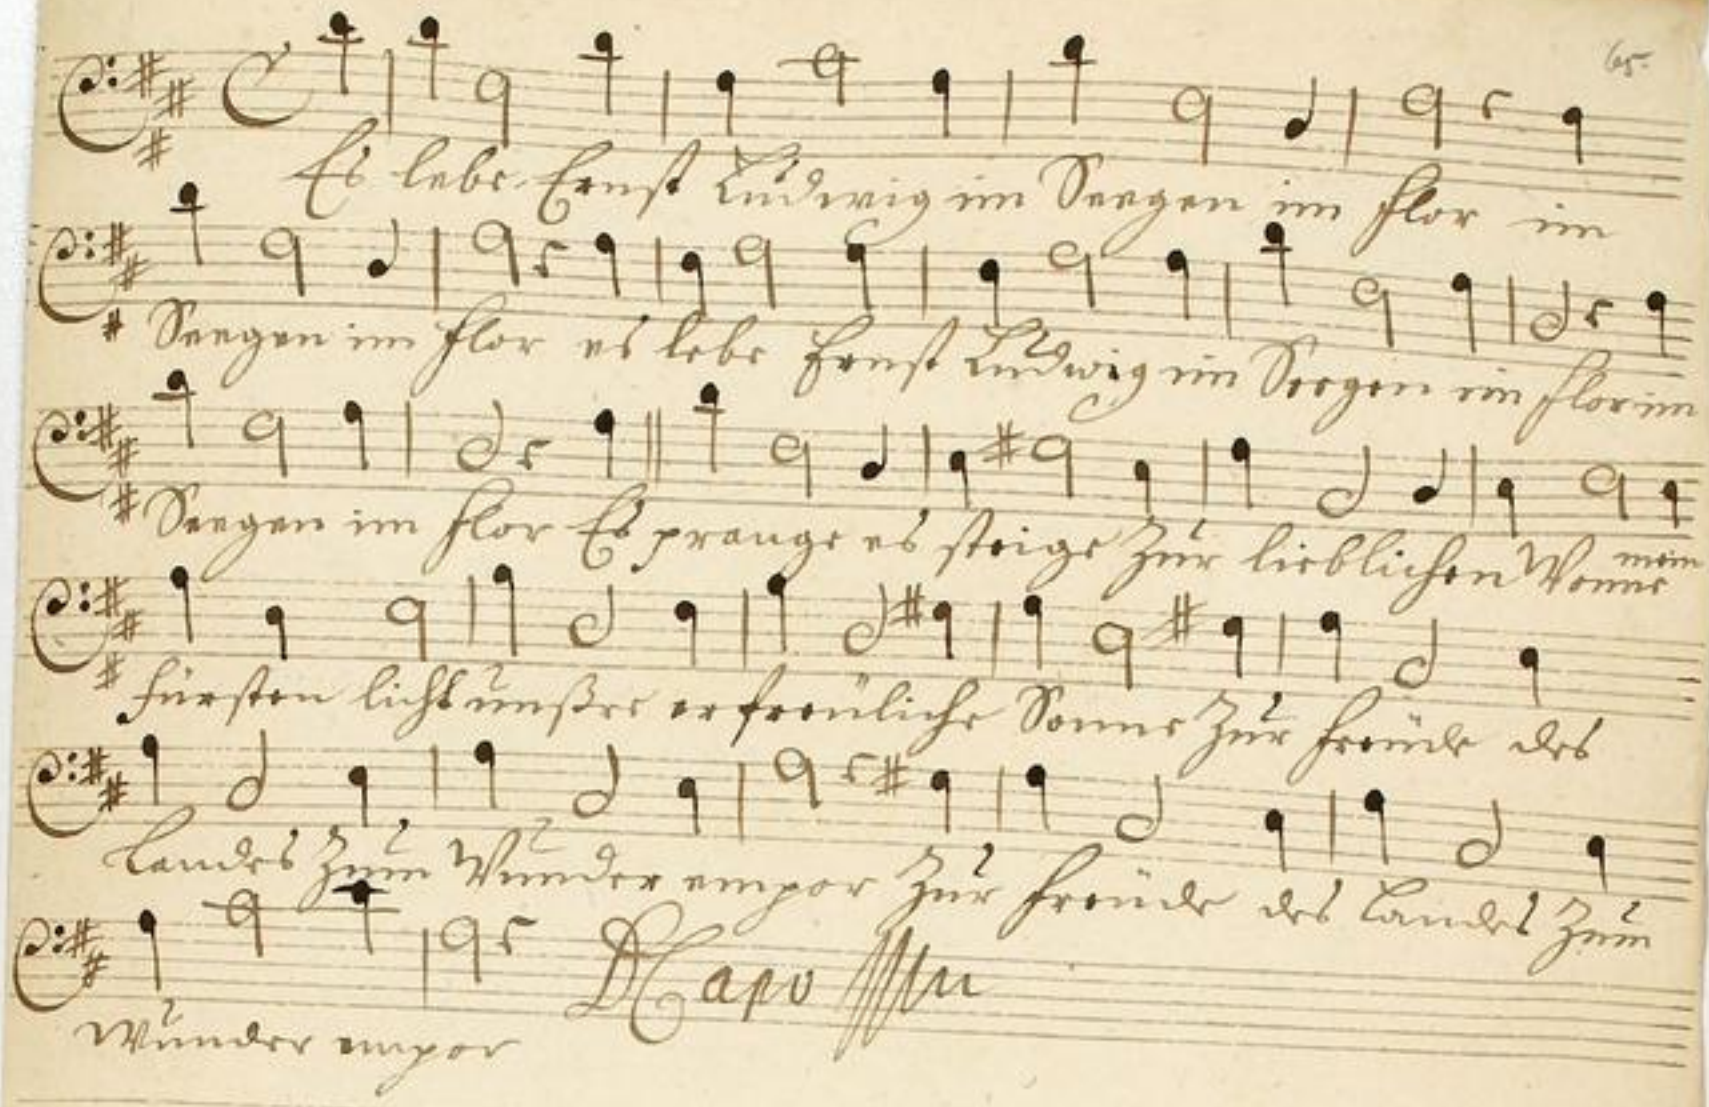 65.
Es lebe Ernst Ludwig im Seegen im flor im
Seegen im flor es lebe Ernst Ludwig im Seegen im flor im
Seegen im flor Es prange es steige zur lieblichen Wonne mein
fürsten licht unßre erfreuliche Sonne zur freude des
Landes zum Wunder empor zur freude des Landes zum
Wunder empor
DCapo